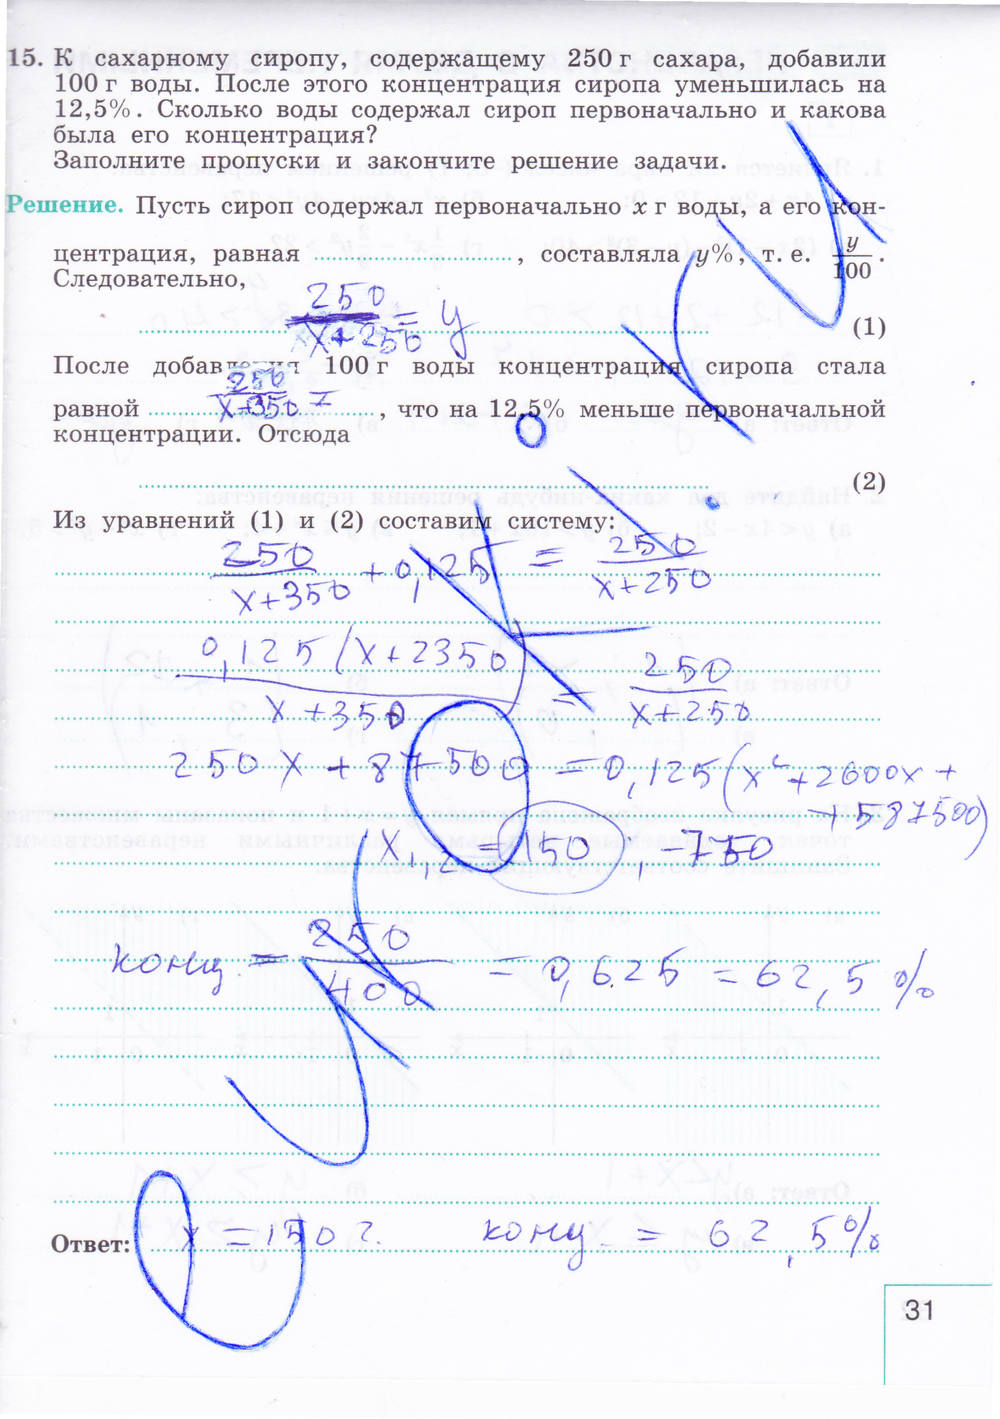 15. К сахарному сиропу, содержащему 250 г сахара, добавили
100 г воды. После этого концентрация сиропа уменьшилась на
12,5%. Сколько воды содержал сироп первоначально и какова
была его концентрация?
Заполните пропуски и закончите решение задачи.
Решение. Пусть сироп содержал первоначально x г воды, а его кон-
центрация, равная , составляла y%, т. е. y/100.
Следовательно,
250/(x+250) = y (1)
После добавления 100 г воды концентрация сиропа стала
равной 250/(x+350) = , что на 12,5% меньше первоначальной
концентрации. Отсюда
(2)
Из уравнений (1) и (2) составим систему:
250/(x+350) + 0,125 = 250/(x+250)
0,125(x+2350)/(x+350) = 250/(x+250)
250x + 87500 = 0,125(x²+2600x +
+587500)
x₁,₂ = 150, -750
конц. = 250/400 = 0,625 = 62,5 %
Ответ: x = 150 г. конц. = 62,5%
31